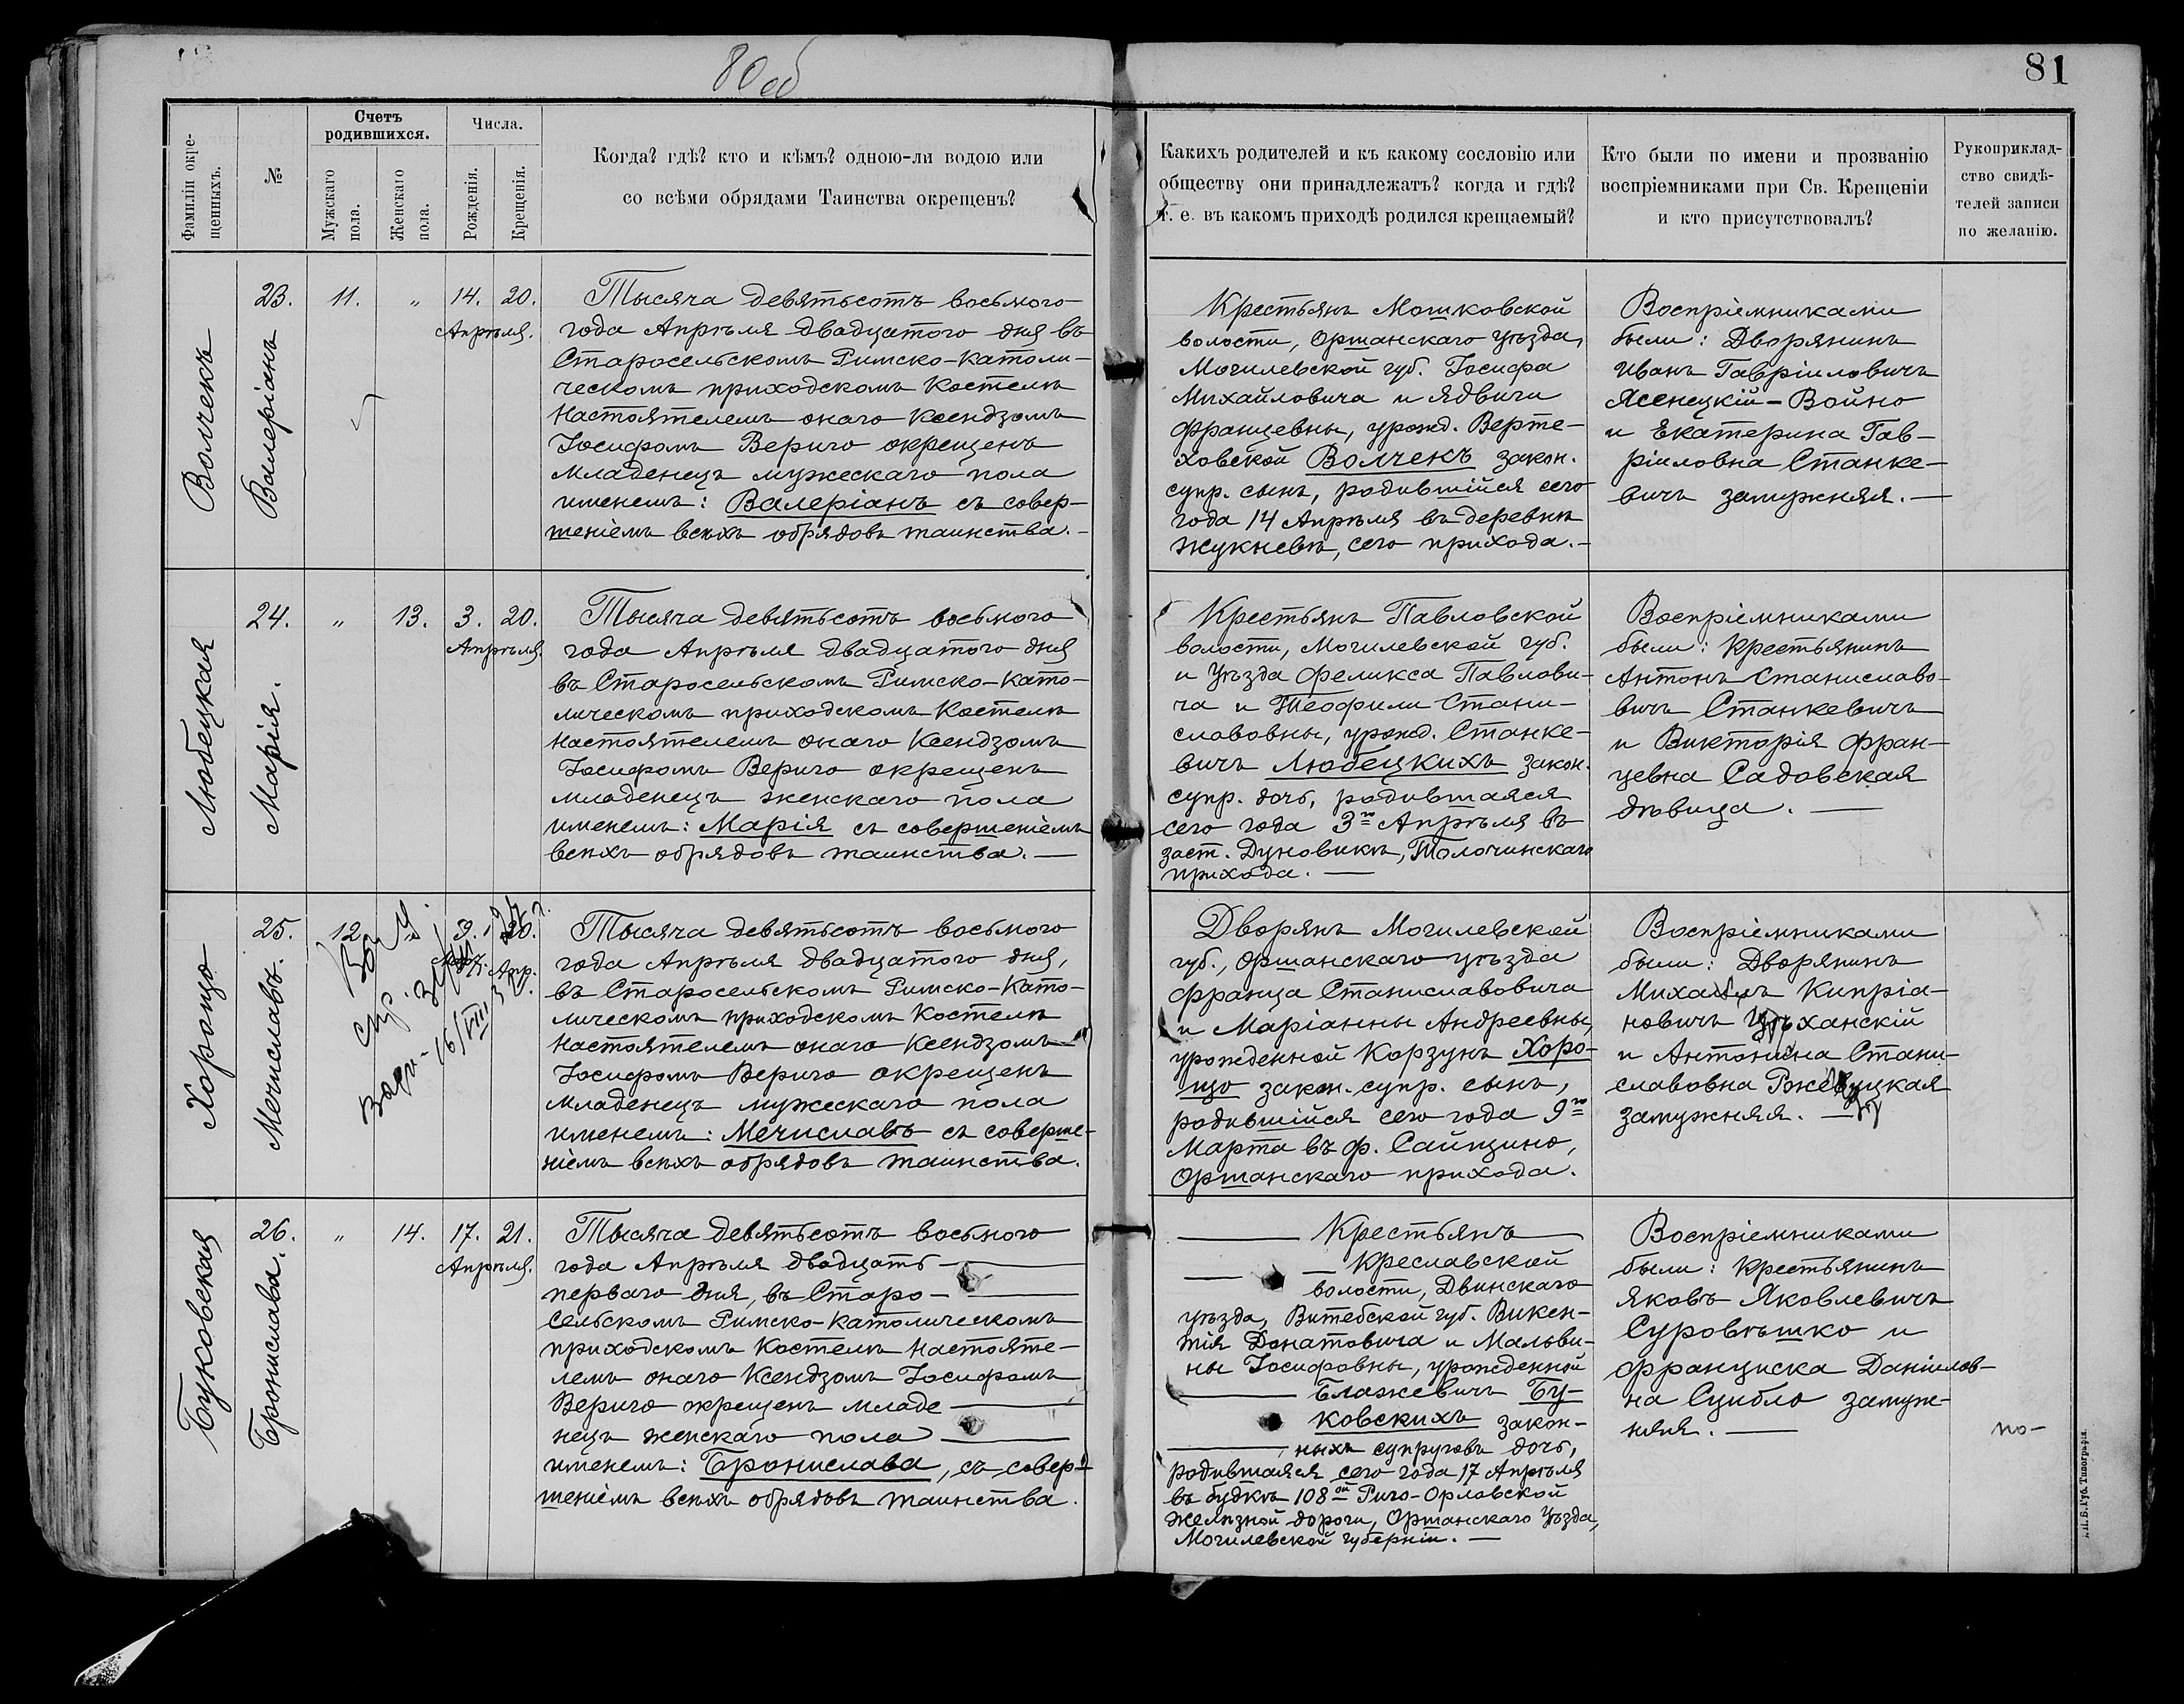 80 об
81
Фамиліи окре-
щенныхъ.
№
Счетъ
родившихся.
Мужскаго
пола.
Женскаго
пола.
Числа.
Рожденія.
Крещенія.
Когда? гдѣ? кто и кѣмъ? одною-ли водою или
со всѣми обрядами Таинства окрещенъ?
Какихъ родителей и къ какому сословію или
обществу они принадлежатъ? когда и гдѣ?
т. е. въ какомъ приходѣ родился крещаемый?
Кто были по имени и прозванію
воспріемниками при Св. Крещеніи
и кто присутствовалъ?
Рукоприклад-
ство свидѣ-
телей записи
по желанію.
Волчекъ
23.
Валеріанъ
11.
„
14. 20.
Апрѣля.
Тысяча девятьсотъ восьмого
года Апрѣля двадцатого дня въ
Старосельскомъ Римско-католи-
ческомъ приходскомъ Костелѣ
Настоятелемъ онаго Ксендзомъ
Іосифомъ Верыго окрещенъ
младенецъ мужескаго пола
именемъ: Валеріанъ съ совер-
шеніемъ всѣхъ обрядовъ таинства.-
Крестьянъ Мошковской
волости, Оршанскаго уѣзда,
Могилевской губ. Іосифа
Михайловича и Ядвиги
Францевны, урожд. Верте-
ховской Волчекъ закон.
супр. сынъ, родившійся сего
года 14 Апрѣля въ деревнѣ
Жукневѣ, сего прихода.-
Воспріемниками
были: Дворянинъ
Иванъ Гавріиловичъ
Ясенецкій-Войно
и Екатерина Гав-
ріиловна Станке-
вичъ замужняя.-
Любецкая
24.
Марія.
„
13.
3. 20.
Апрѣля.
Тысяча девятьсотъ восьмого
года Апрѣля двадцатого дня
въ Старосельскомъ Римско-като-
лическомъ приходскомъ Костелѣ
Настоятелемъ онаго Ксендзомъ
Іосифомъ Верыго окрещенъ
младенецъ женскаго пола
именемъ: Марія съ совершеніемъ
всѣхъ обрядовъ таинства.-
Крестьянъ Павловской
волости, Могилевской губ.
и уѣзда Феликса Павлови-
ча и Теофили Стани-
славовны, урожд. Станке-
вичъ Любецкихъ закон.
супр. дочь, родившаяся
сего года 3го Апрѣля въ
заст. Дуновикѣ, Толочинскаго
прихода.-
Воспріемниками
были: Крестьянинъ
Антонъ Станиславо-
вичъ Станкевичъ
и Викторія Фран-
цевна Садовская
дѣвица.-
Хорощо
25.
Мечиславъ.
12
9. 20.
Март. Апр.
16/VIII
Тысяча девятьсотъ восьмого
года Апрѣля двадцатого дня,
въ Старосельскомъ Римско-Като-
лическомъ приходскомъ Костелѣ
Настоятелемъ онаго Ксендзомъ
Іосифомъ Верыго окрещенъ
младенецъ мужескаго пола
именемъ: Мечиславъ съ соверше-
ніемъ всѣхъ обрядовъ таинства.
Дворянъ Могилевской
губ., Оршанскаго уѣзда
Франца Станиславовича
и Маріанны Андреевны,
урожденной Корзунъ Хоро-
що закон. супр. сынъ,
родившійся сего года 9го
Марта въ ф. Сайщино,
Оршанскаго прихода.
Воспріемниками
были: Дворянинъ
Михаилъ Кипріа-
новичъ
и Антонина Стани-
славовна
замужняя.-
Буковская
26.
Бронислава.
„
14.
17. 21.
Апрѣля.
Тысяча девятьсотъ восьмого
года Апрѣля двадцать
перваго дня, въ Старо-
сельскомъ Римско-католическомъ
приходскомъ Костелѣ Настояте-
лемъ онаго Ксендзомъ Іосифомъ
Верыго окрещенъ младе-
нецъ женскаго пола
именемъ: Бронислава, съ совер-
шеніемъ всѣхъ обрядовъ таинства.
Крестьянъ
Креславской
волости, Двинскаго
уѣзда, Витебской губ. Викен-
тія Донатовича и Мальви-
ны Іосифовны, урожденной
Блажевичъ Бу-
ковскихъ закон-
ныхъ супруговъ дочь,
родившаяся сего года 17 Апрѣля
въ будкѣ 108ой Риго-Орловской
железной дороги, Оршанскаго уѣзда,
Могилевской губерніи.-
Воспріемниками
были: Крестьянинъ
Яковъ Яковлевичъ
Суровѣшко и
Франциска Даніилов-
на Сцибло замуж-
няя.-
по-
Губ. Типографія.